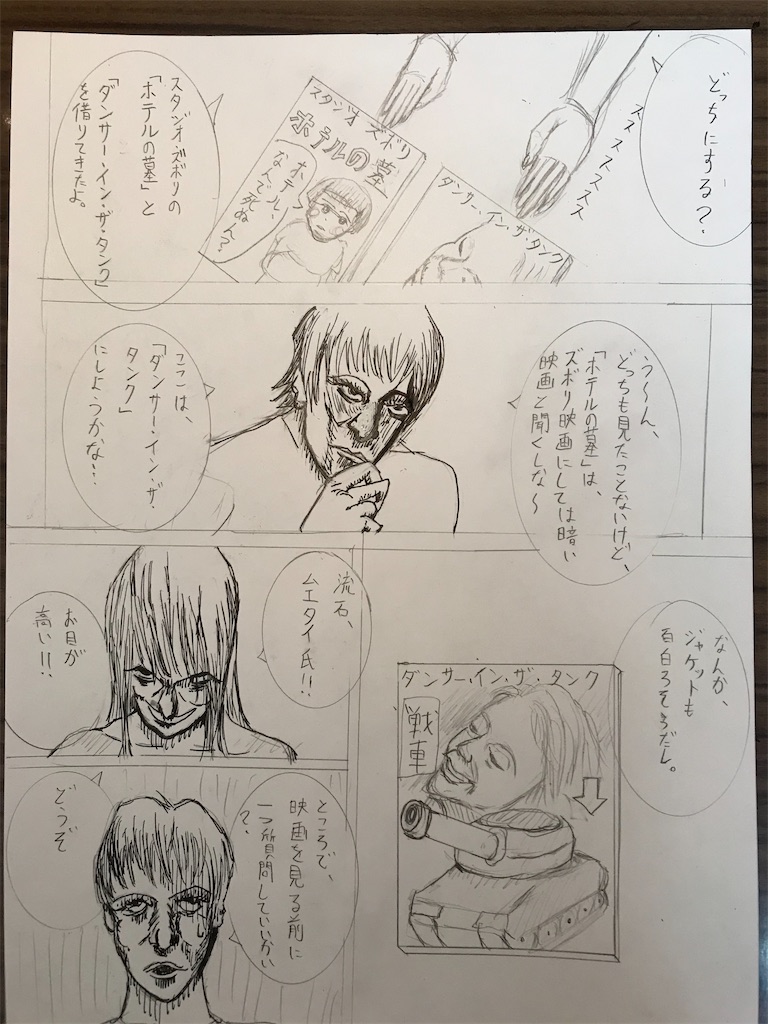 どっちにする?
ススススススス
スタジオ・ズボリの
「ホテルの墓」と
「ダンサー・イン・ザ・タンク」
を借りてきたよ。
スタジオ ズボリ
ホテルの墓
ホテル、
なんで死ぬん?
ダンサー・イン・ザ・タンク
う〜ん、
どっちも見たことないけど、
「ホテルの墓」は、
ズボリ映画にしては暗い
映画と聞くしな〜
ここは、
「ダンサー・イン・ザ・
タンク」
にしようかな!!
なんか、
ジャケットも
面白ろそうだし。
ダンサー・イン・ザ・タンク
戦車
流石、
ムエタイ氏!!
お目が
高い!!
ところで、
映画を見る前に
一つ質問していいかい
?
どうぞ